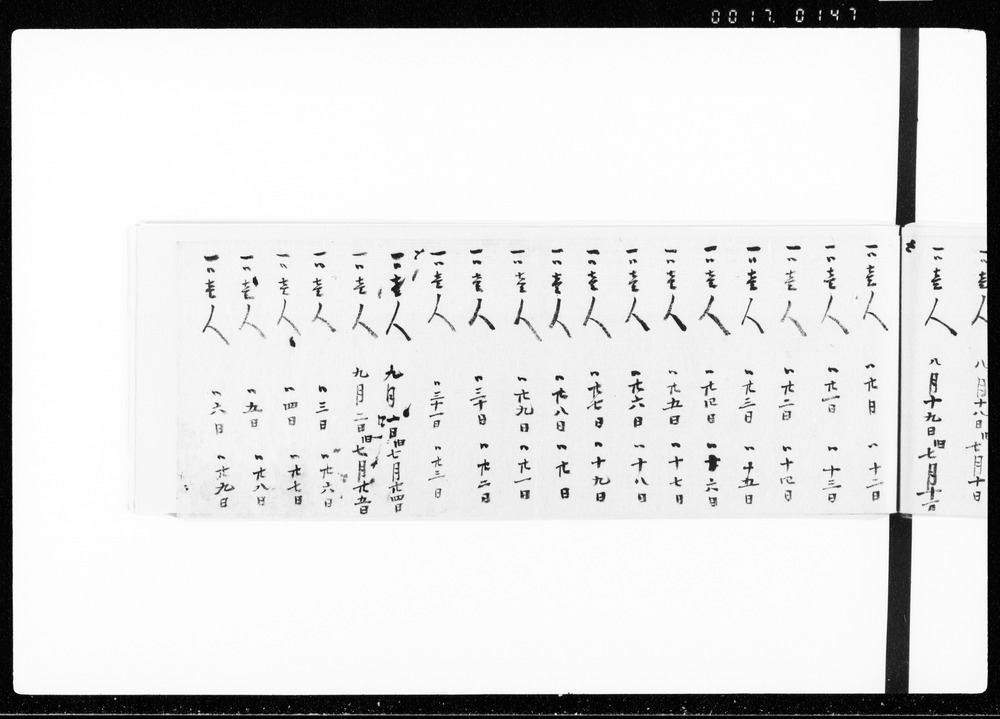 0017.0147
一〃壱人 八月十八日 七月十日
一〃壱人 八月十九日旧七月十一日
一〃壱人 〃廿日 〃十二日
一〃壱人 〃廿一日 〃十三日
一〃壱人 〃廿二日 〃十四日
一〃壱人 〃廿三日 〃十五日
一〃壱人 〃廿四日 〃十六日
一〃壱人 〃廿五日 〃十七日
一〃壱人 〃廿六日 〃十八日
一〃壱人 〃廿七日 〃十九日
一〃壱人 〃廿八日 〃廿日
一〃壱人 〃廿九日 〃廿一日
一〃壱人 〃三十日 〃廿二日
一〃壱人 〃三十一日 〃廿三日
一〃壱人 九月一日旧七月廿四日
一〃壱人 九月二日旧七月廿五日
一〃壱人 〃三日 〃廿六日
一〃壱人 〃四日 〃廿七日
一〃壱人 〃五日 〃廿八日
一〃壱人 〃六日 〃廿九日